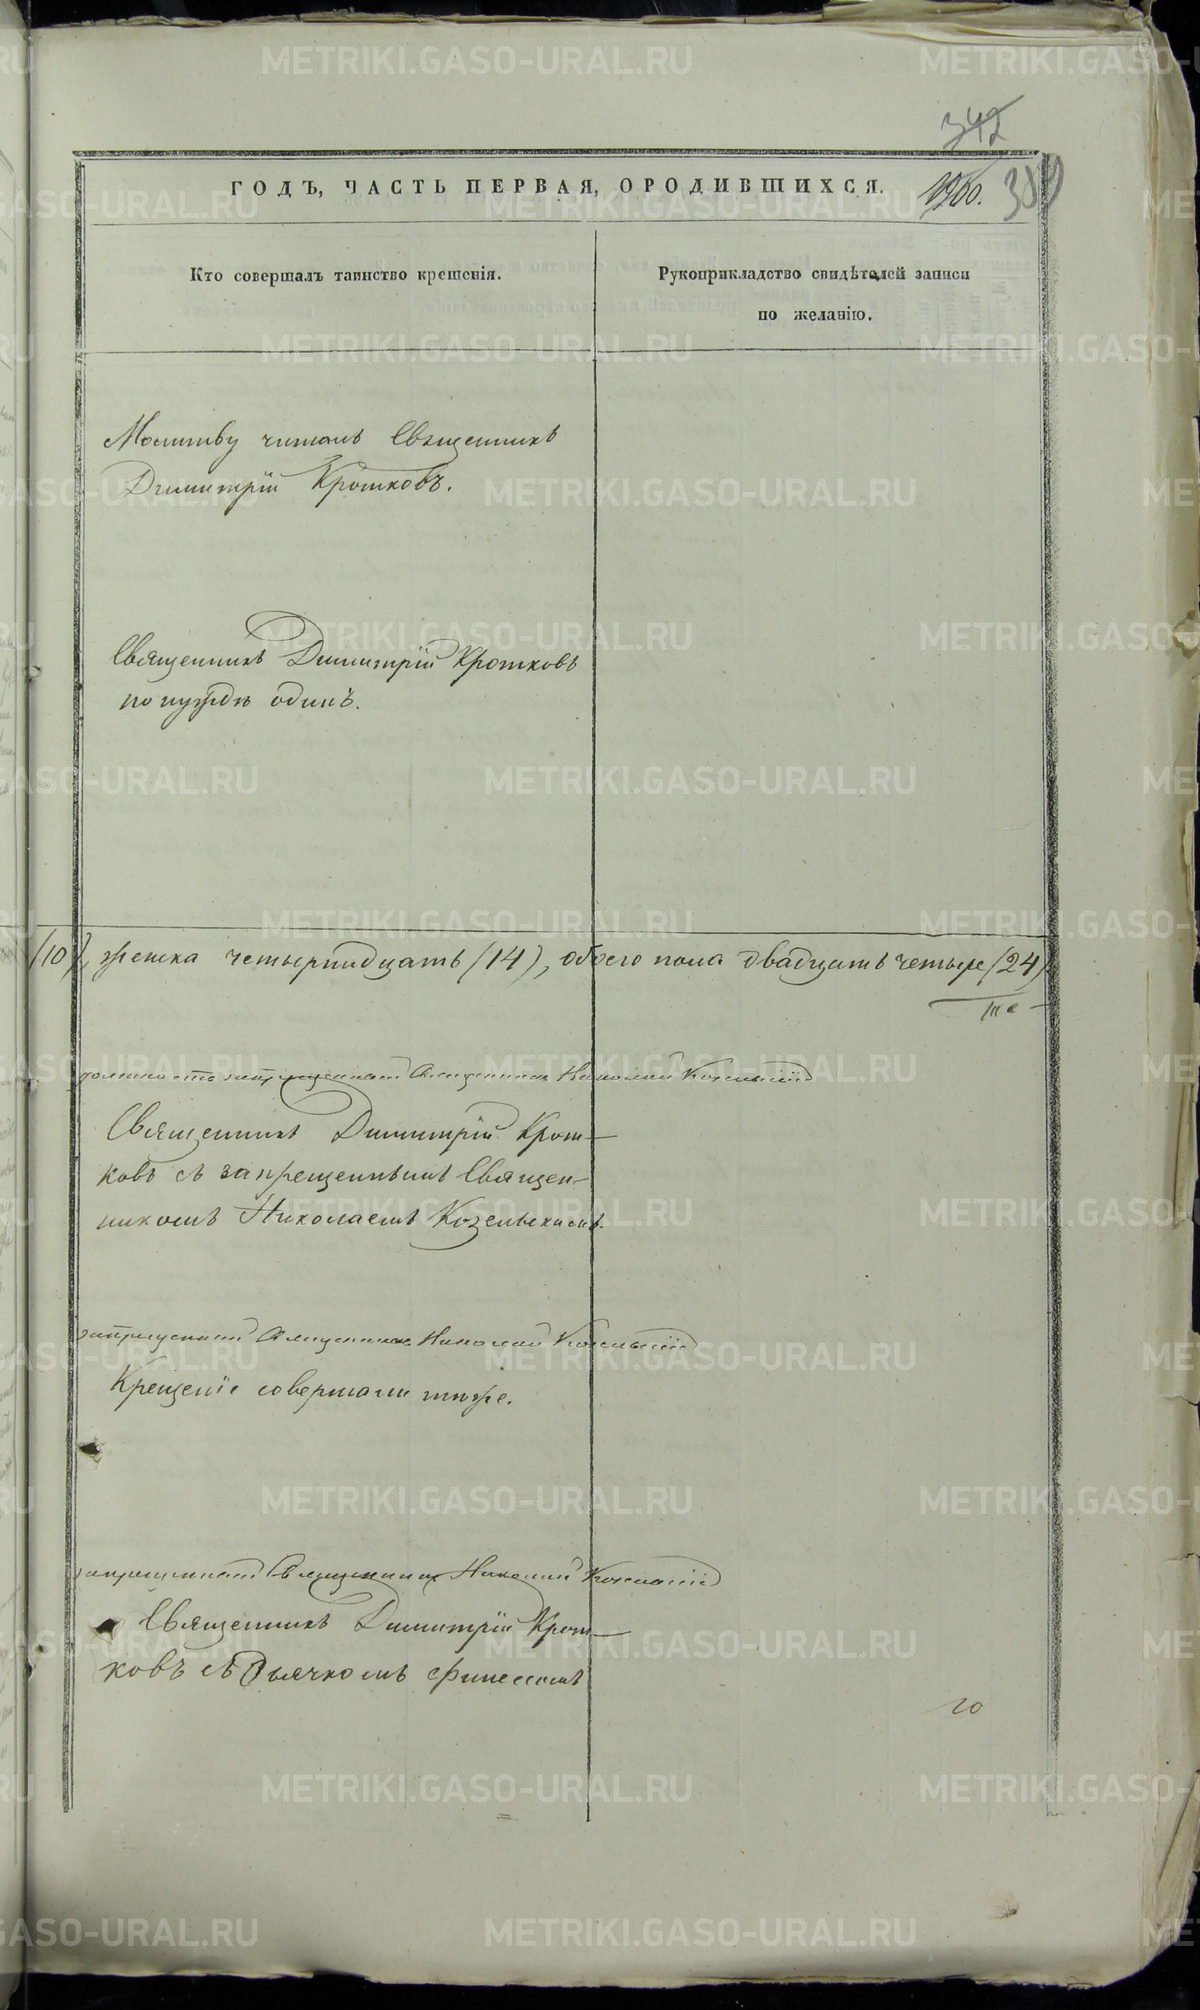 342
ГОДЪ, ЧАСТЬ ПЕРВАЯ, ОРОДИВШИХСЯ.
Кто совершалъ таинство крещенія.
Рукоприкладство свидѣтелей записи
по желанію.
Молитву читалъ Священникъ
Димитрій Кротковъ.
Священникъ Димитрій Кротковъ
по нуждѣ одинъ.
/10/, женска четырнадцать /14/, обоего пола двадцать четыре /24/
Священникъ Николай
Священникъ Димитрій Крот-
ковъ съ запрещеннымъ Священ-
никомъ Николаемъ Козельскимъ.
запрещенный Священникъ Николай
Крещеніе совершали тѣже.
запрещенный Священникъ Николай
Священникъ Димитрій Крот-
ковъ съ Дьячкомъ
го
METRIKI.GASO-URAL.RU